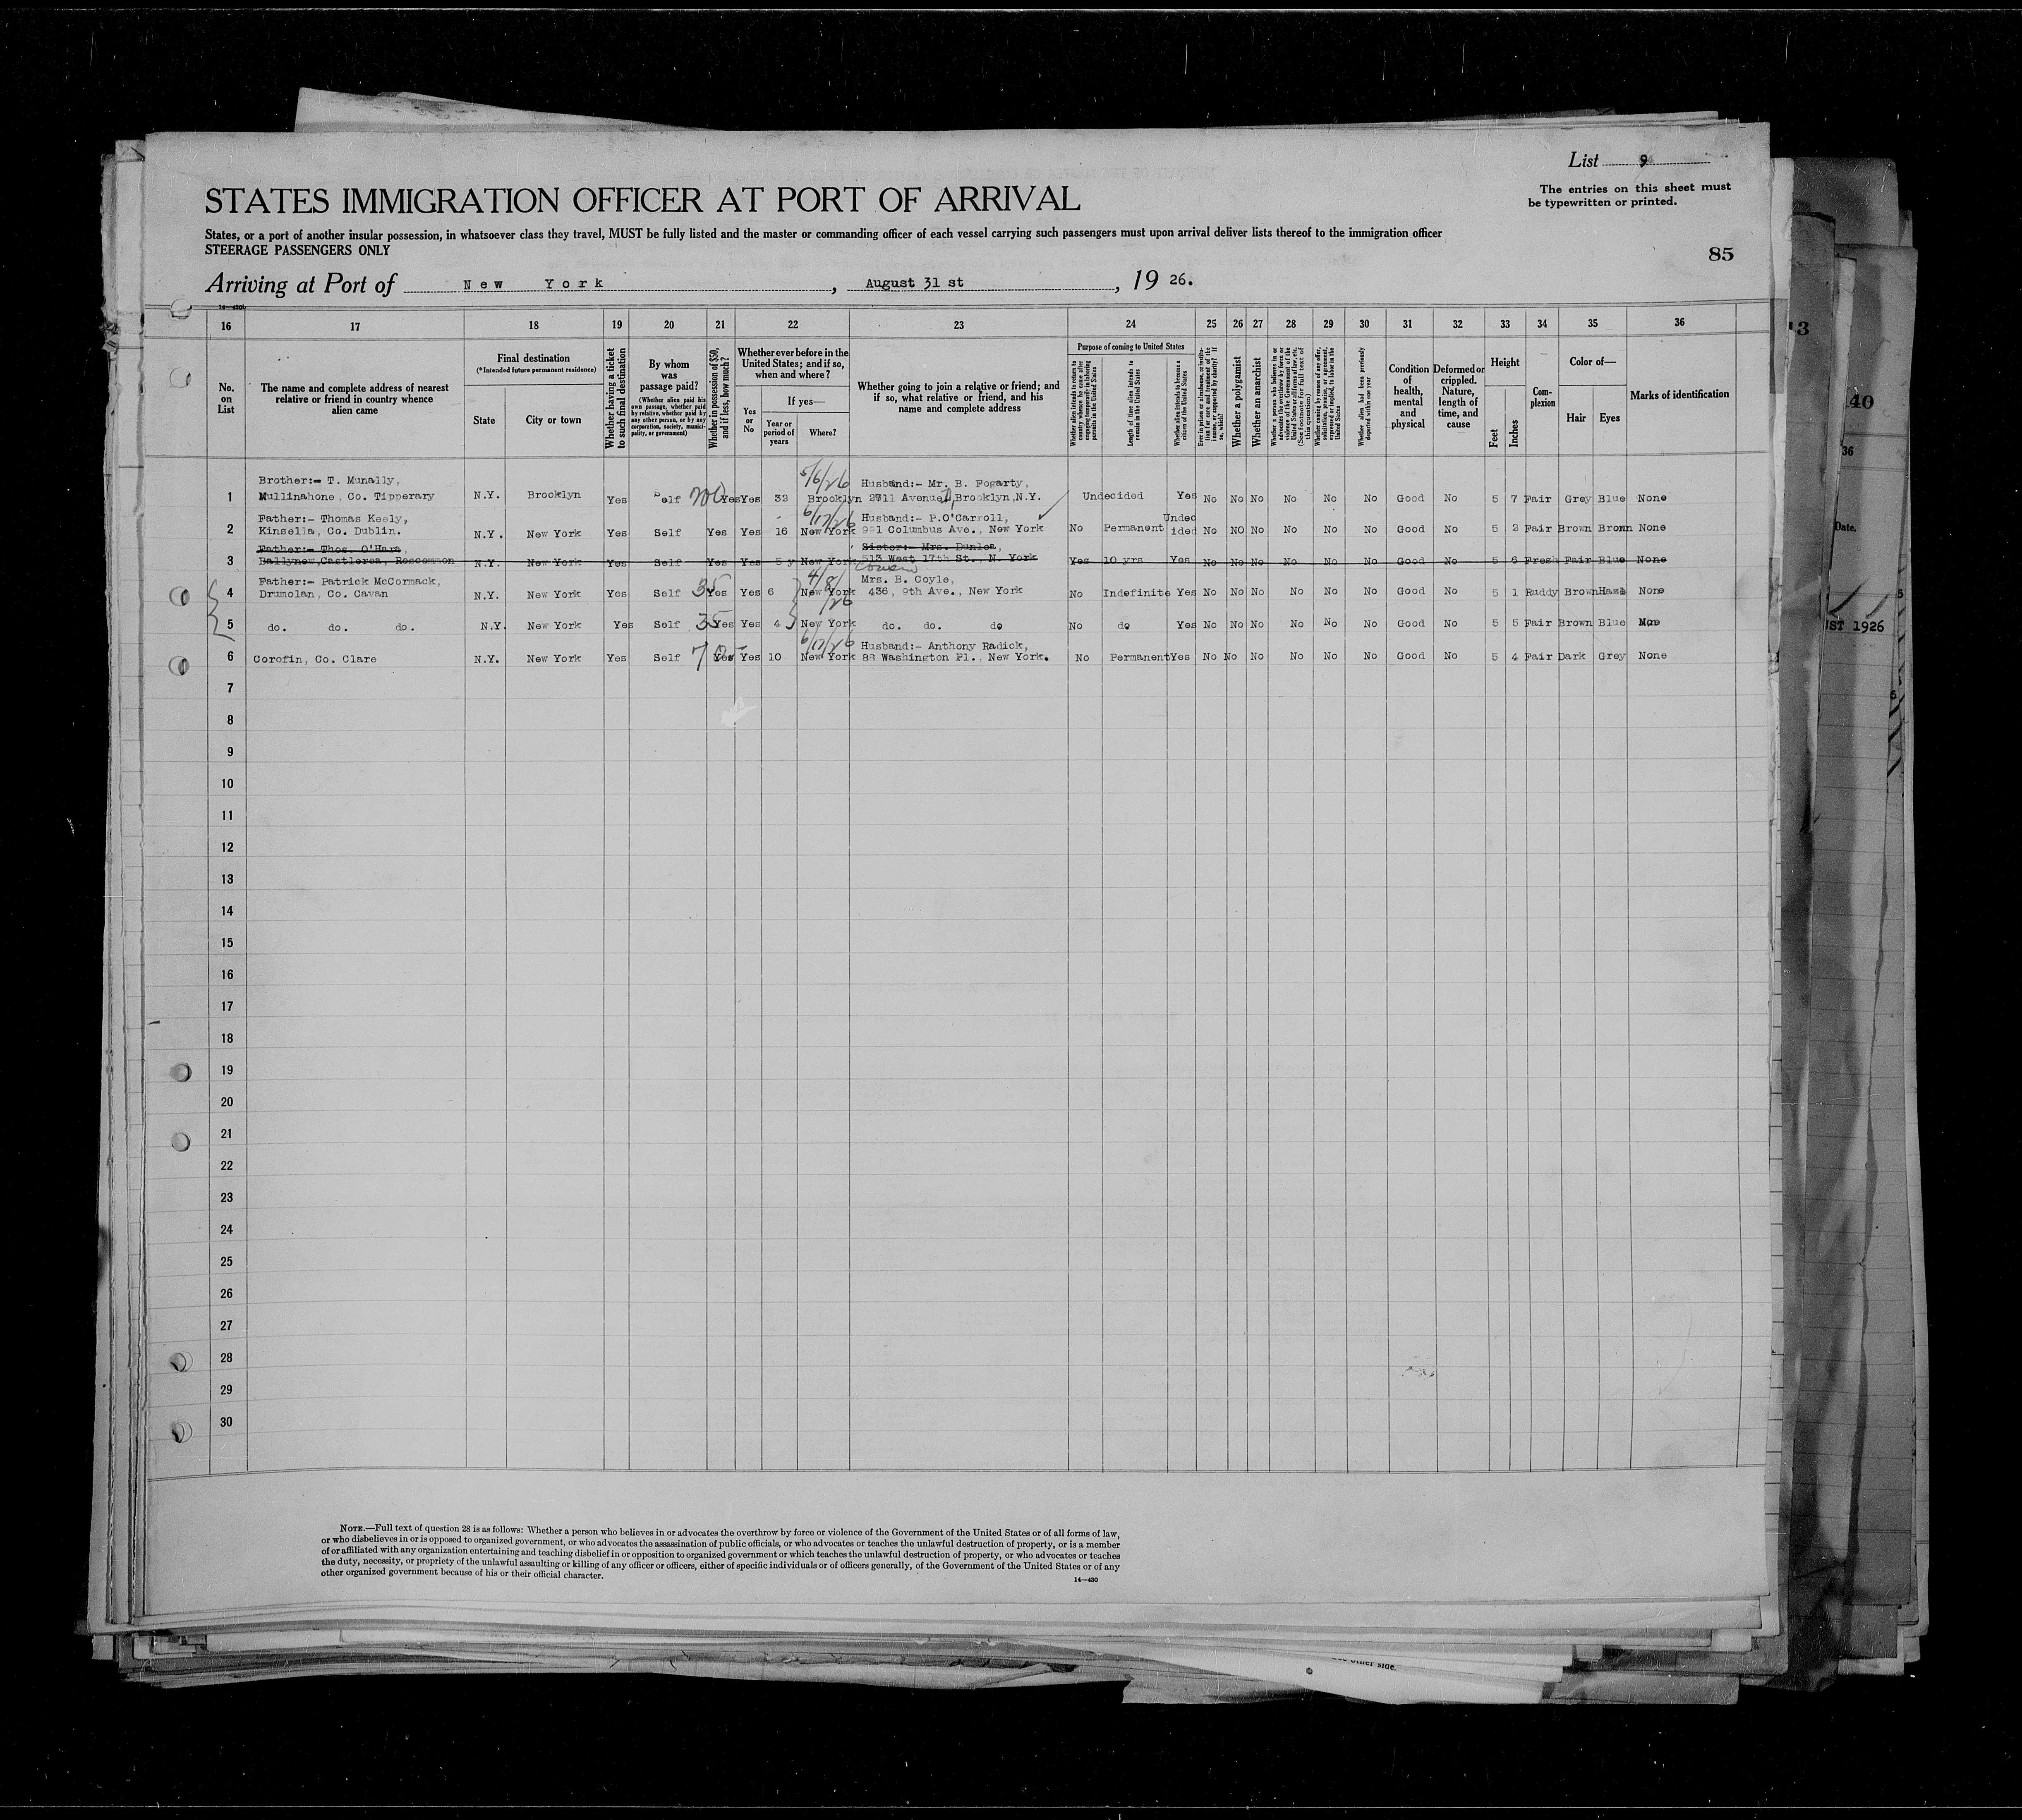 List 9
The entries on this sheet must
be typewritten or printed.
STATES IMMIGRATION OFFICER AT PORT OF ARRIVAL
States, or a port of another insular possession, in whatsoever class they travel, MUST be fully listed and the master or commanding officer of each vessel carrying such passengers must upon arrival deliver lists thereof to the immigration officer
STEERAGE PASSENGERS ONLY
85
Arriving at Port of New York, August 31 st, 19 26.
14—430
16 17 18 19 20 21 22 23 24 25 26 27 28 29 30 31 32 33 34 35 36
No. on List
The name and complete address of nearest relative or friend in country whence alien came
Final destination
(*Intended future permanent residence)
State
City or town
Whether having a ticket to such final destination
By whom was passage paid?
(Whether alien paid his own passage, whether paid by relative, whether paid by any other person, or by any corporation, society, municipality, or government)
Whether in possession of $50, and if less, how much?
Whether ever before in the United States; and if so, when and where?
Yes or No
If yes—
Year or period of years
Where?
Whether going to join a relative or friend; and if so, what relative or friend, and his name and complete address
Purpose of coming to United States
Whether alien intends to return to country whence he came after engaging temporarily in laboring pursuits in the United States
Length of time alien intends to remain in the United States
Whether alien intends to become a citizen of the United States
Ever in prison or almshouse, or institution for care and treatment of the insane, or supported by charity? If so, which?
Whether a polygamist
Whether an anarchist
Whether a person who believes in or advocates the overthrow by force or violence of the Government of the United States or all forms of law, etc. (See footnote for full text of this question)
Whether coming by reason of any offer, solicitation, promise, or agreement, expressed or implied, to labor in the United States
Whether alien had been previously deported within one year
Condition of health, mental and physical
Deformed or crippled. Nature, length of time, and cause
Height
Feet
Inches
Complexion
Color of—
Hair
Eyes
Marks of identification
5/6/26
Brother:- T. Munally, Husband:- Mr. B. Fogarty,
1 Mullinahone, Co. Tipperary N.Y. Brooklyn Yes Self 200 Yes Yes 32 Brooklyn 2711 Avenue D, Brooklyn, N.Y. Undecided Yes No No No No No No Good No 5 7 Fair Grey Blue None
6/17/26
Father:- Thomas Keely, Husband:- P.O'Carroll, Undec
2 Kinsella, Co. Dublin. N.Y. New York Yes Self Yes Yes 16 New York 991 Columbus Ave., New York No Permanent ided No NO No No No No Good No 5 2 Fair Brown Brown None
Father:- Thos. O'Hara, Sister:- Mrs. Dunlea,
3 Ballynew, Castlerea, Roscommon N.Y. New York Yes Self Yes Yes 5 y New York 513 West 17th St., N. York Yes 10 yrs Yes No No No No No No Good No 5 6 Fresh Fair Blue None
Cousin
4/8/26
Father:- Patrick McCormack, Mrs. B. Coyle,
4 Drumolan, Co. Cavan N.Y. New York Yes Self 35 Yes Yes 6 New York 436, 9th Ave., New York No Indefinite Yes No No No No No No Good No 5 1 Ruddy Brown Hazl None
5 do. do. do. N.Y. New York Yes Self 35 Yes Yes 4 New York do. do. do No do Yes No No No No No No Good No 5 5 Fair Brown Blue None
6/17/26
Husband:- Anthony Radick,
6 Corofin, Co. Clare N.Y. New York Yes Self Yes Yes 10 New York 88 Washington Pl., New York. No Permanent Yes No No No No No No Good No 5 4 Fair Dark Grey None
7
8
9
10
11
12
13
14
15
16
17
18
19
20
21
22
23
24
25
26
27
28
29
30
NOTE.—Full text of question 28 is as follows: Whether a person who believes in or advocates the overthrow by force or violence of the Government of the United States or of all forms of law,
or who disbelieves in or is opposed to organized government, or who advocates the assassination of public officials, or who advocates or teaches the unlawful destruction of property, or is a member
of or affiliated with any organization entertaining and teaching disbelief in or opposition to organized government or which teaches the unlawful destruction of property, or who advocates or teaches
the duty, necessity, or propriety of the unlawful assaulting or killing of any officer or officers, either of specific individuals or of officers generally, of the Government of the United States or of any
other organized government because of his or their official character.
14—430
3
40
36
Date.
UST 1926
other side.